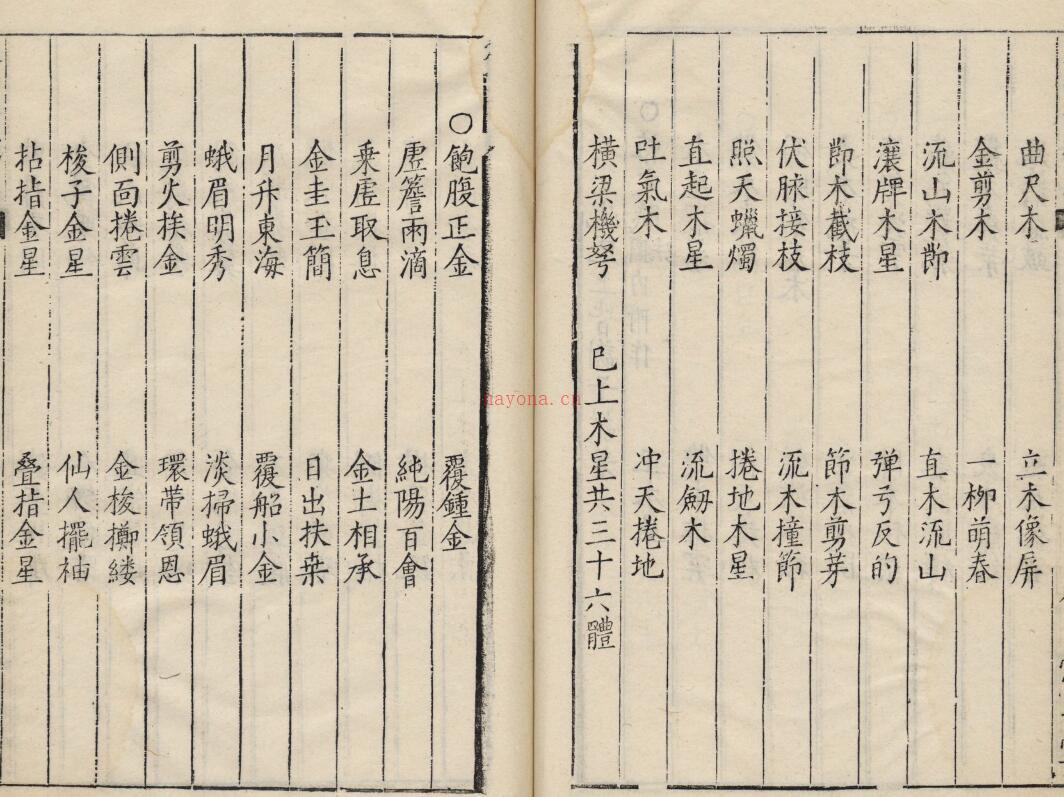 曲尺木　立木像屏
金剪木　一柳萌春
流山木節　直木流山
瀼牌木星　弹弓反的
節木截枝　節木剪芽
伏脉接枝　流木撞節
照天蠟燭　捲地木星
直起木星　流劒木
吐氣木　冲天捲地
横梁機弩　已上木星共三十六體
○飽腹正金　覆鍾金
虚簷雨滴　純陽百會
乗虚取息　金土相承
金圭玉簡　日出扶桒
月升東海　覆船小金
蛾眉明秀　淡掃蛾眉
剪火挨金　環帶領恩
側面捲雲　金梭擲縷
梭子金星　仙人擺袖
拈指金星　叠指金星
nayona.cn